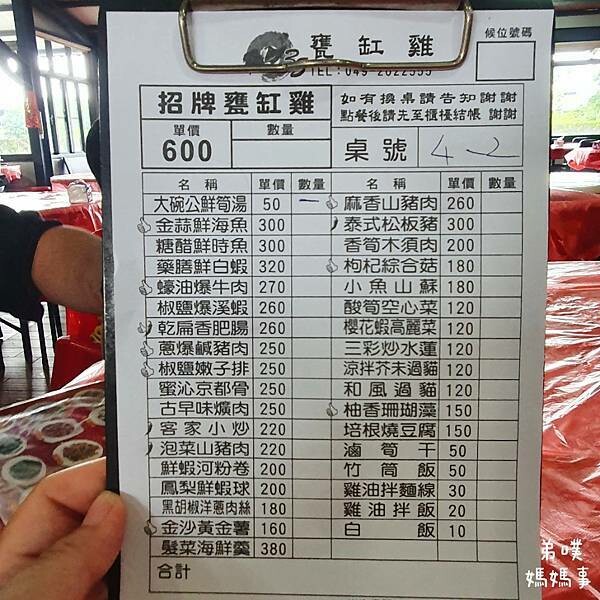 甕缸雞
TEL:049-2622555
候位號碼
招牌甕缸雞
單價 數量
600
如有換桌請告知謝謝
點餐後請先至櫃檯結帳 謝謝
桌號 4-2
名稱 單價 數量
大碗公鮮筍湯 50 一
金蒜鮮海魚 300
糖醋鮮時魚 300
藥膳鮮白蝦 320
蠔油爆牛肉 270
椒鹽爆溪蝦 260
乾扁香肥腸 260
蔥爆鹹豬肉 250
椒鹽嫩子排 250
蜜沁京都骨 250
古早味爌肉 250
客家小炒 220
泡菜山豬肉 220
鮮蝦河粉卷 200
鳳梨鮮蝦球 200
黑胡椒洋蔥肉絲 180
金沙黃金薯 160
髮菜海鮮羹 380
合計
名稱 單價 數量
麻香山豬肉 260
泰式松板豬 300
香筍木須肉 200
枸杞綜合菇 180
小魚山蘇 180
酸筍空心菜 120
櫻花蝦高麗菜 120
三彩炒水蓮 120
涼拌芥末過貓 120
和風過貓 120
柚香珊瑚藻 150
培根燒豆腐 150
滷筍干 50
竹筒飯 50
雞油拌麵線 30
雞油拌飯 20
白飯 10
弟噗
媽媽事